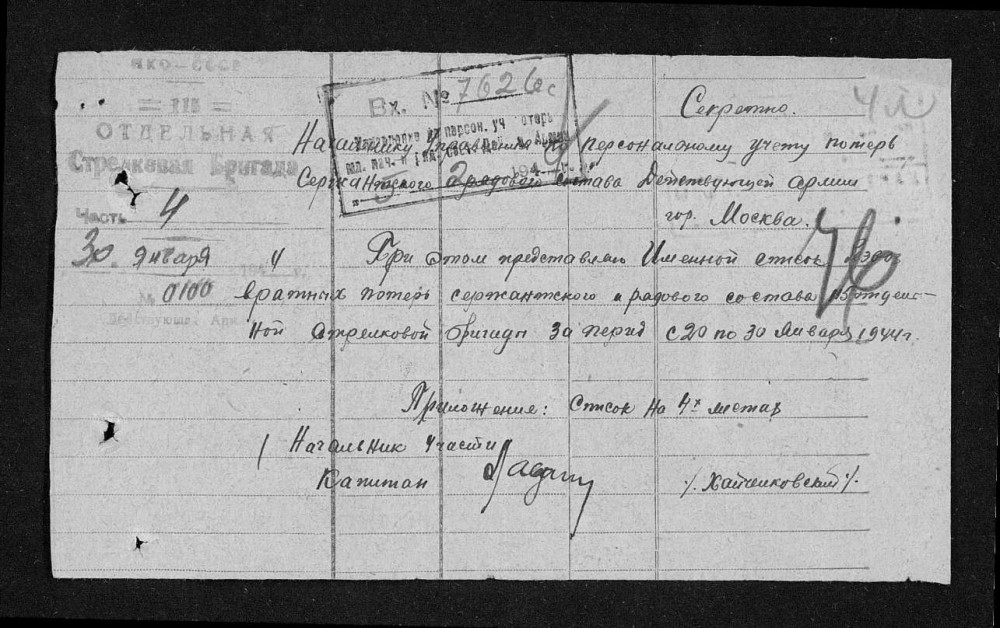 НКО-СССР
= 115 =
ОТДЕЛЬНАЯ
Стрелковая Бригада
Часть 4
30. января 194 г.
№ 0100
Действующая Армия
Вх. № 7626с
персон. уч потерь
194 г.
Секретно.
4л
Начальнику Управления по персональному учету потерь
Сержантского и рядового состава Действующей армии
гор. Москва.
При этом представляю Именной список
вратных потерь сержантского и рядового состава
ной стрелковой бригады за период с 20 по 30 Января 1944г.
Приложение: Список на 4х листах
Начальник 4 части
Капитан /. Хайченковский /.